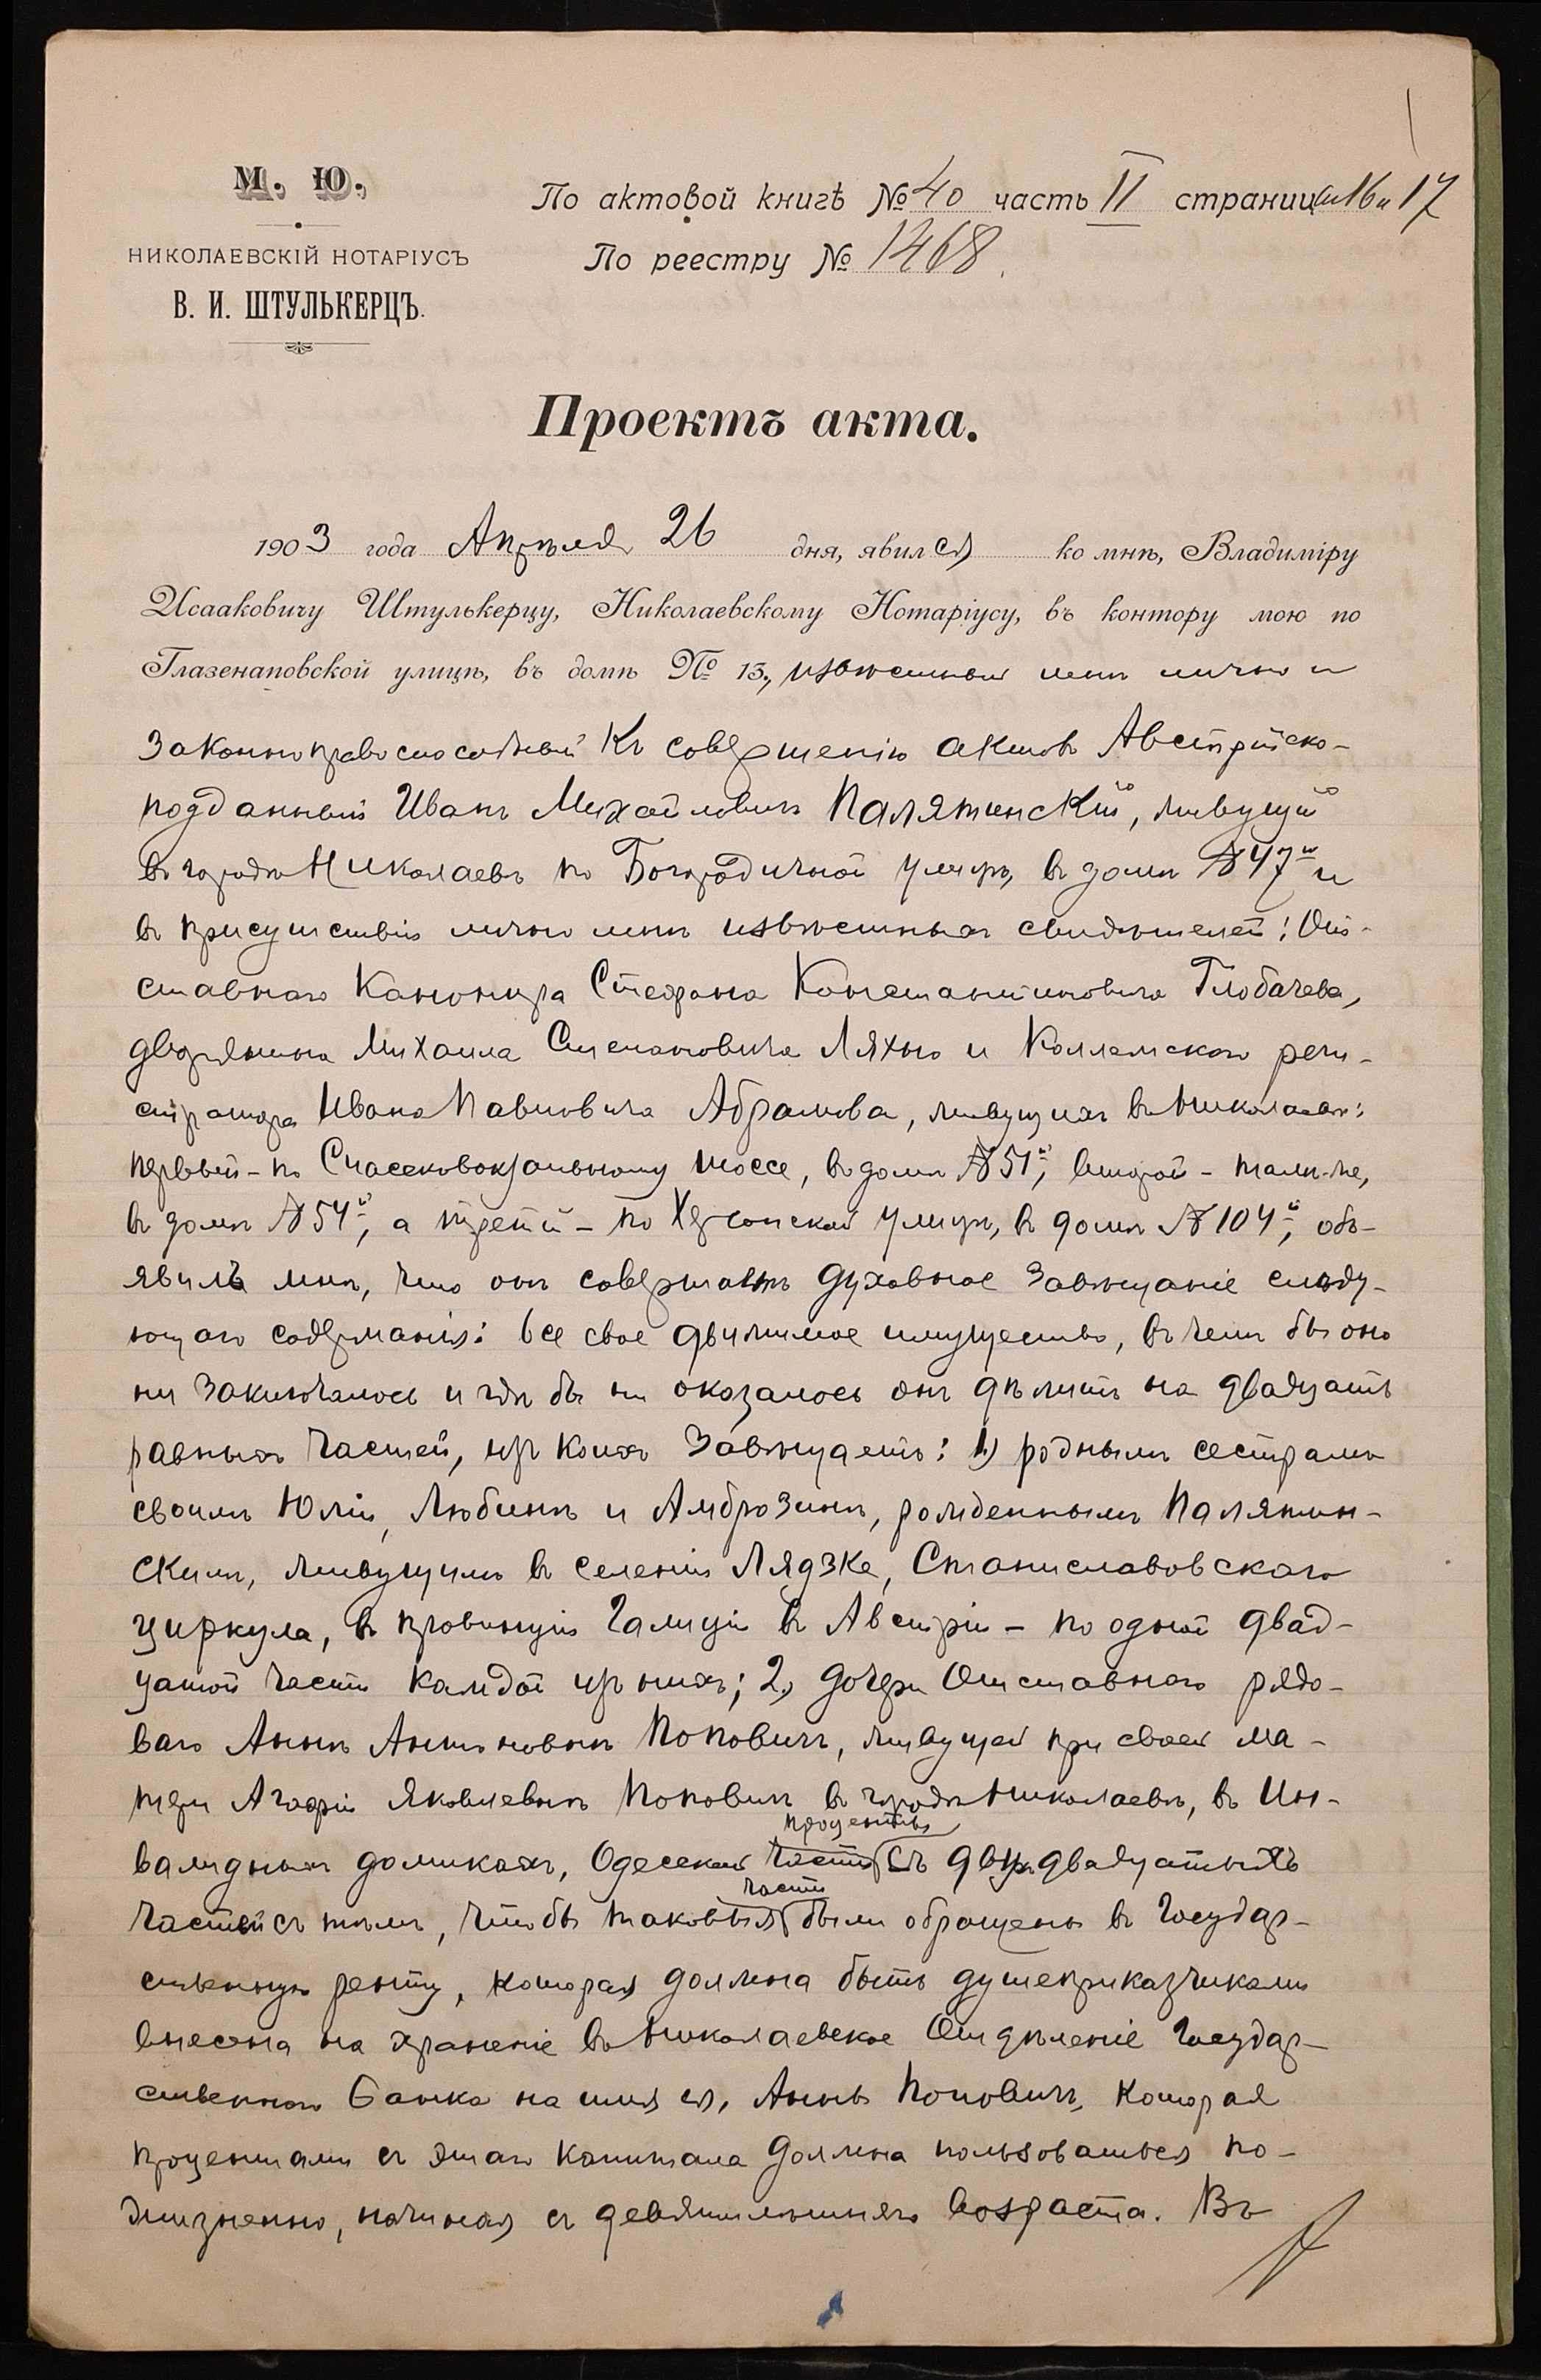 М. Ю.
НИКОЛАЕВСКІЙ НОТАРІУСЪ
В. И. ШТУЛЬКЕРЦЪ.
По актовой книгѣ № 40 часть II страницы 16 и 17
По реестру № 1468.
Проектъ акта.
1903 года Апрѣля 26 дня, явился ко мнѣ, Владиміру
Исааковичу Штулькерцу, Николаевскому Нотаріусу, въ контору мою по
Глазенаповской улицѣ, въ домѣ № 13, извѣстный мнѣ лично и
законноправоспособный къ совершенію актовъ Австрійско-
подданный Иванъ Михайловичъ Палятинскій, живущій
въ городѣ Николаевѣ по Богородичной улицѣ, въ домѣ № 47й и
въ присутствіи лично мнѣ извѣстныхъ свидѣтелей: От-
ставнаго канонира Стефана Константиновича Глобачева,
дворянина Михаила Степановича Ляхно и Коллежскаго реги-
стратора Ивана Павловича Абрамова, живущихъ въ Николаевѣ:
первый - по Спасековокзальному шоссе, въ домѣ № 51й, второй - тамъ-же,
въ домѣ № 54й, а третій - по Херсонской улицѣ, въ домѣ № 104й, объ-
явилъ мнѣ, что онъ совершаетъ духовное завѣщаніе слѣду-
ющаго содержанія: все свое движимое имущество, въ чемъ бы оно
ни заключалось и гдѣ бы ни оказалось онъ дѣлитъ на двадцать
равныхъ частей, изъ коихъ завѣщаетъ: 1) роднымъ сестрамъ
своимъ Юліи, Любинѣ и Амброзинѣ, рожденнымъ Палятин-
скимъ, живущимъ въ селеніи Лядзке, Станиславовскаго
циркула, въ провинціи Галиціи въ Австріи - по одной двад-
цатой части каждой изъ нихъ; 2) дочери Отставнаго рядо-
ваго Аннѣ Антоновнѣ Поповичъ, живущей при своей ма-
тери Агафіи Яковлевнѣ Поповичъ въ городѣ Николаевѣ, въ Ин-
проценты
валидныхъ домикахъ, Одесской части съ двухъ двадцатыхъ
части
частей съ тѣмъ, чтобы таковыя были обращены въ Государ-
ственную ренту, которая должна быть душеприказчиками
внесена на храненіе въ Николаевское Отдѣленіе Государ-
ственнаго Банка на имя ея, Анны Поповичъ, которая
процентами съ этаго капитала должна пользоваться по-
жизненно, начиная съ девятилѣтняго возраста. Въ